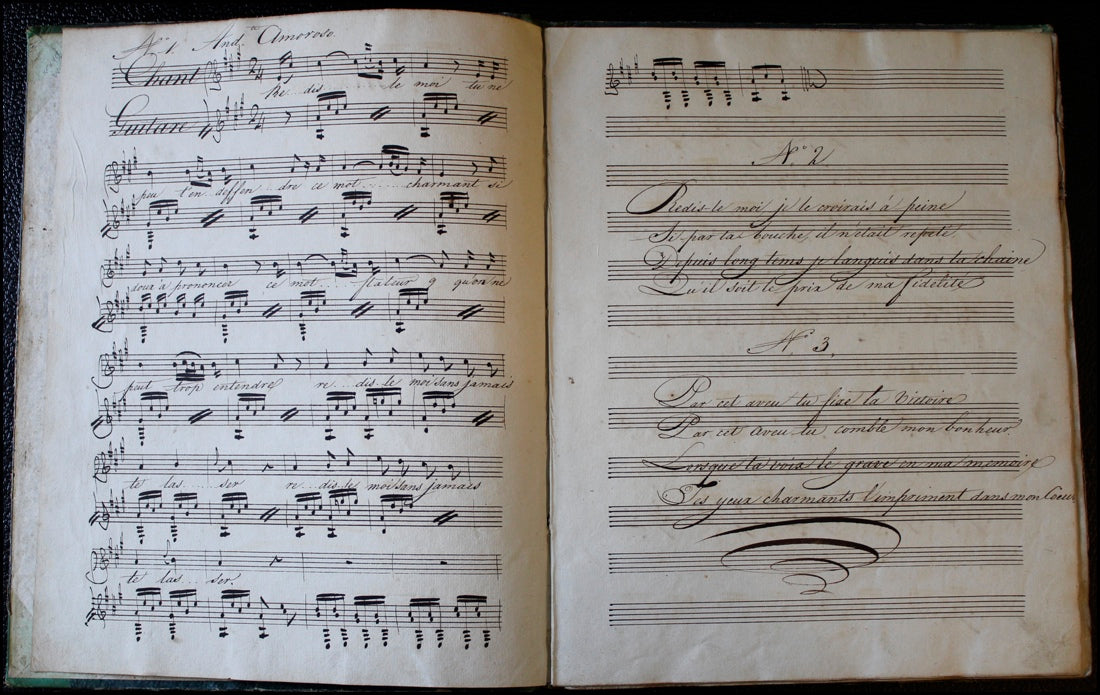 N.º 1 And.te Amoroso.
Chant 2/4
Re..dis.....le moi tu ne
Guitare 2/4
peu t'en deffen..dre ce mot.......charmant si
doux a prononcer ce mot....flateur q qu'on ne
peut trop entendre re...dis..le moi sans jamais
te las...ser re..dis.le moi sans jamais
te las...ser.
N.º 2
Redis-le moi je le croirais à peine
Si par ta bouche, il n'était repeté,
Depuis long tems je languis dans ta chaine
Qu'il soit le prix de ma fidelité,
N.º 3.
Par cet aveu tu fixe ta Victoire
Par cet aveu tu comble mon bonheur.
Lorsque ta voix le grave en ma memoire
Tes yeux charmants l'impriment dans mon Coeur